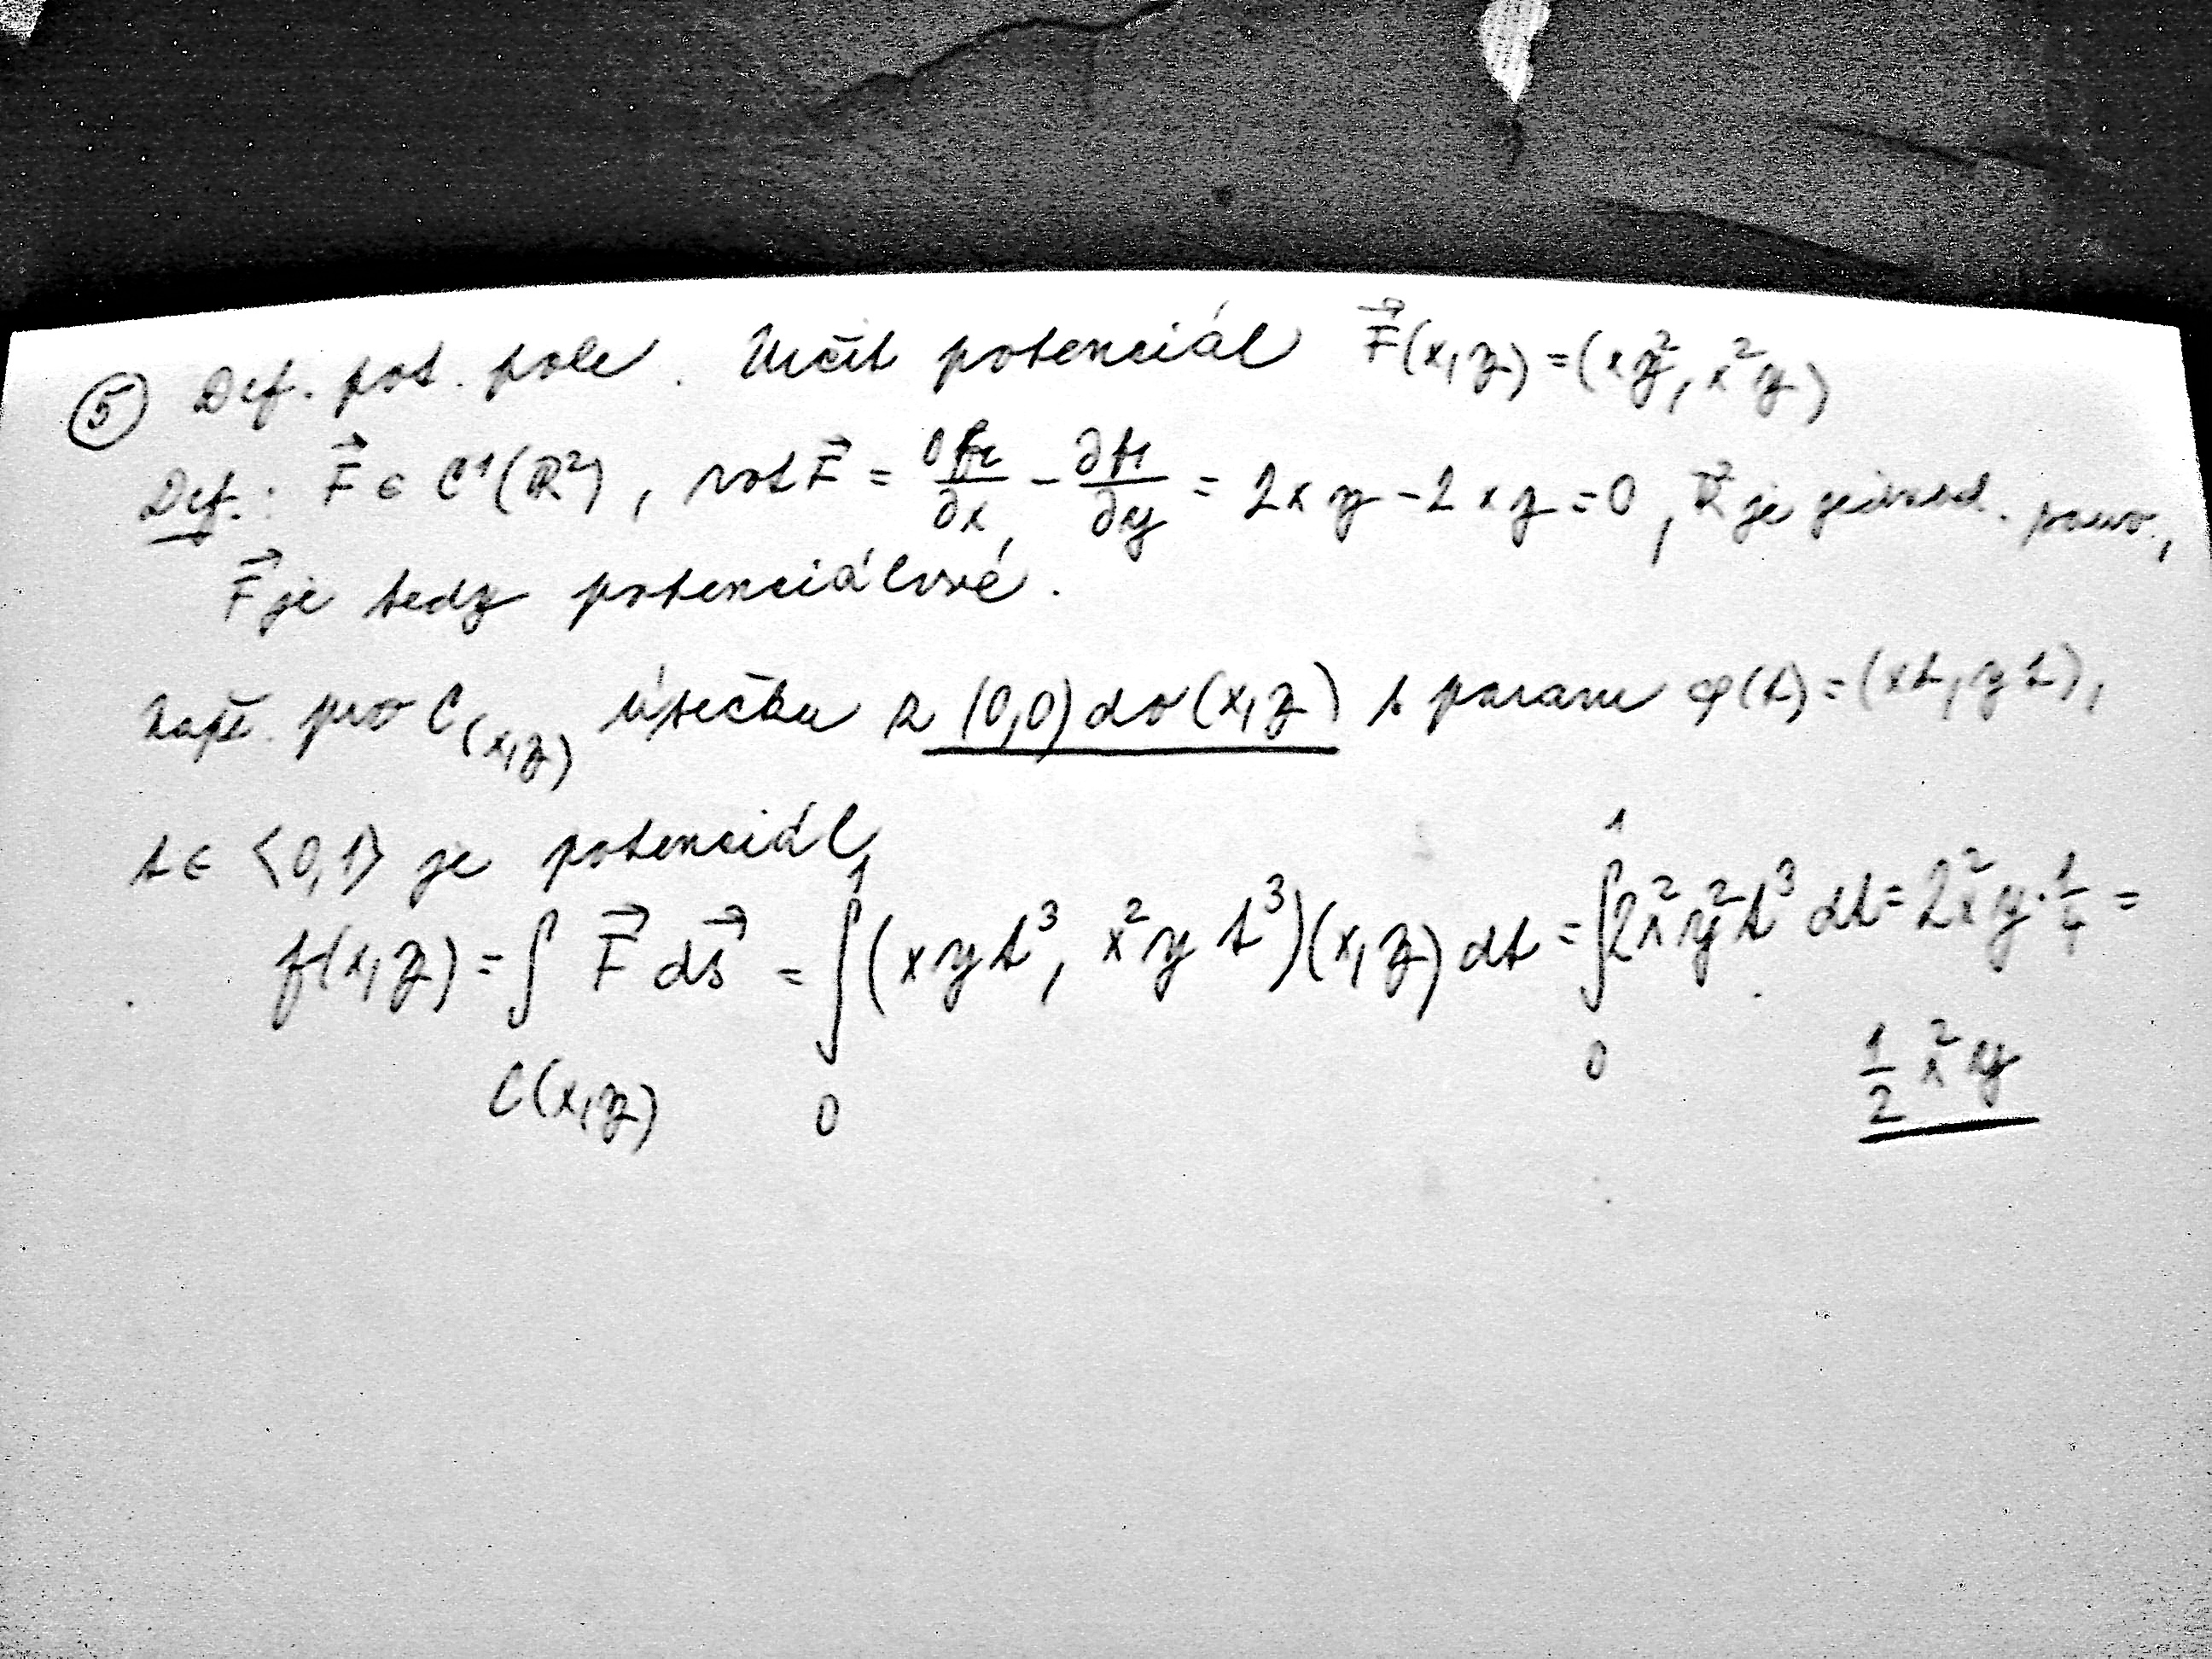 ⑤ Def. pot. pole. Určit potenciál F⃗(x,y) = (xy², x²y)
Def.: F⃗ ∈ C¹(R²), rot F⃗ = ∂f₂/∂x - ∂f₁/∂y = 2xy - 2xy = 0, je jednod. souv.,
F⃗ je tedy potenciálové.
Např. pro C(x,y) úsečku z (0,0) do (x,y) s param φ(t) = (xt, yt),
t ∈ <0,1> je potenciál
f(x,y) = ∫ F⃗ ds⃗ = ∫ (xyt³, x²yt³)(x,y) dt = ∫ 2x²y²t³ dt = 2x²y · 1/4 =
C(x,y) 0 1 0 1 1/2 x²y